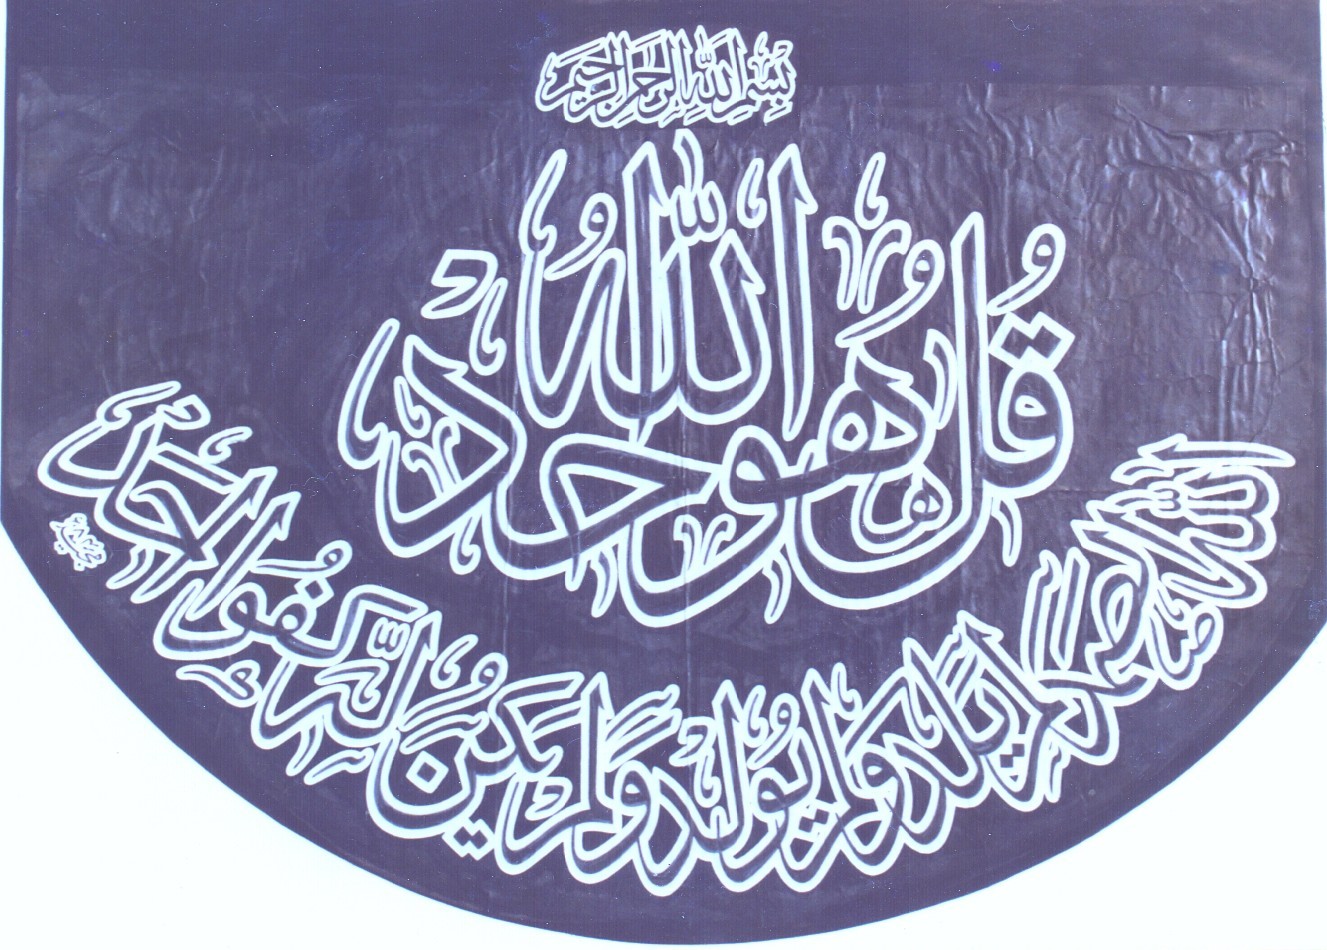 بِسْمِ اللَّهِ الرَّحْمَنِ الرَّحِيمِ
قُلْ هُوَ اللَّهُ أَحَدٌ
اللَّهُ الصَّمَدُ لَمْ يَلِدْ وَلَمْ يُولَدْ وَلَمْ يَكُنْ لَهُ كُفُوًا أَحَدٌ